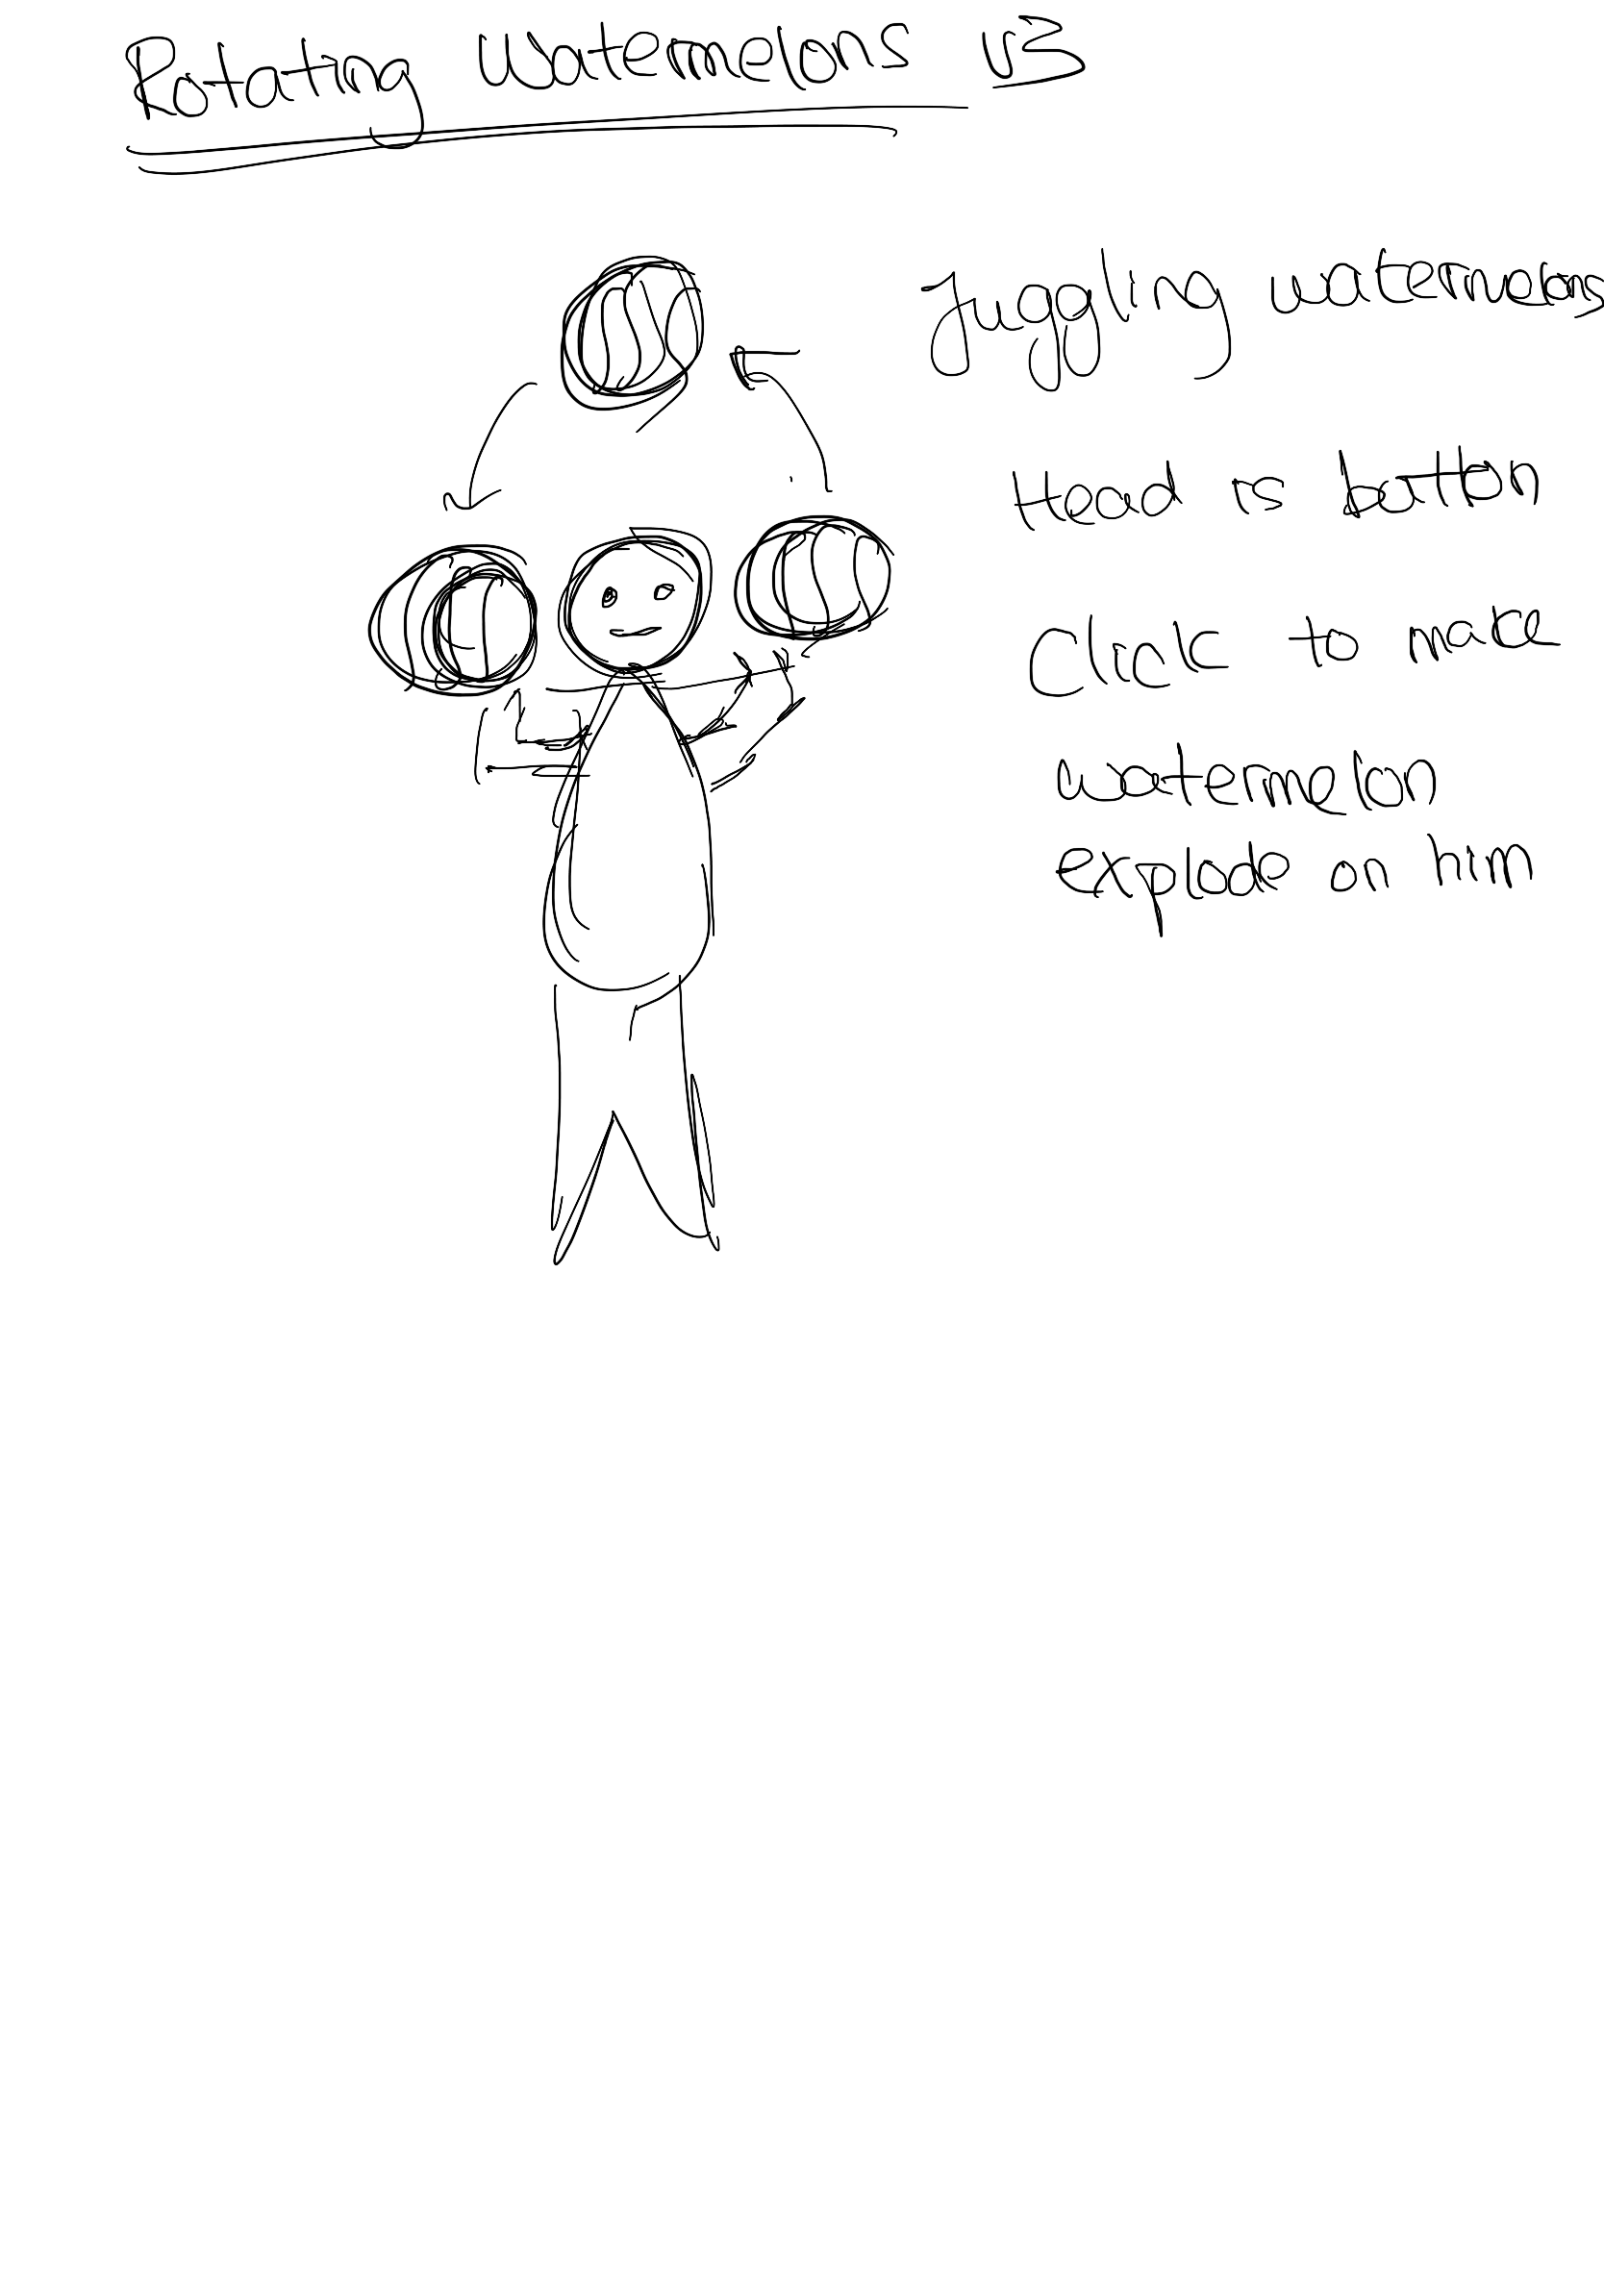 Rotating Watermelons v3
Juggling watermelons
Head is button
Click to make
watermelon
explode on him